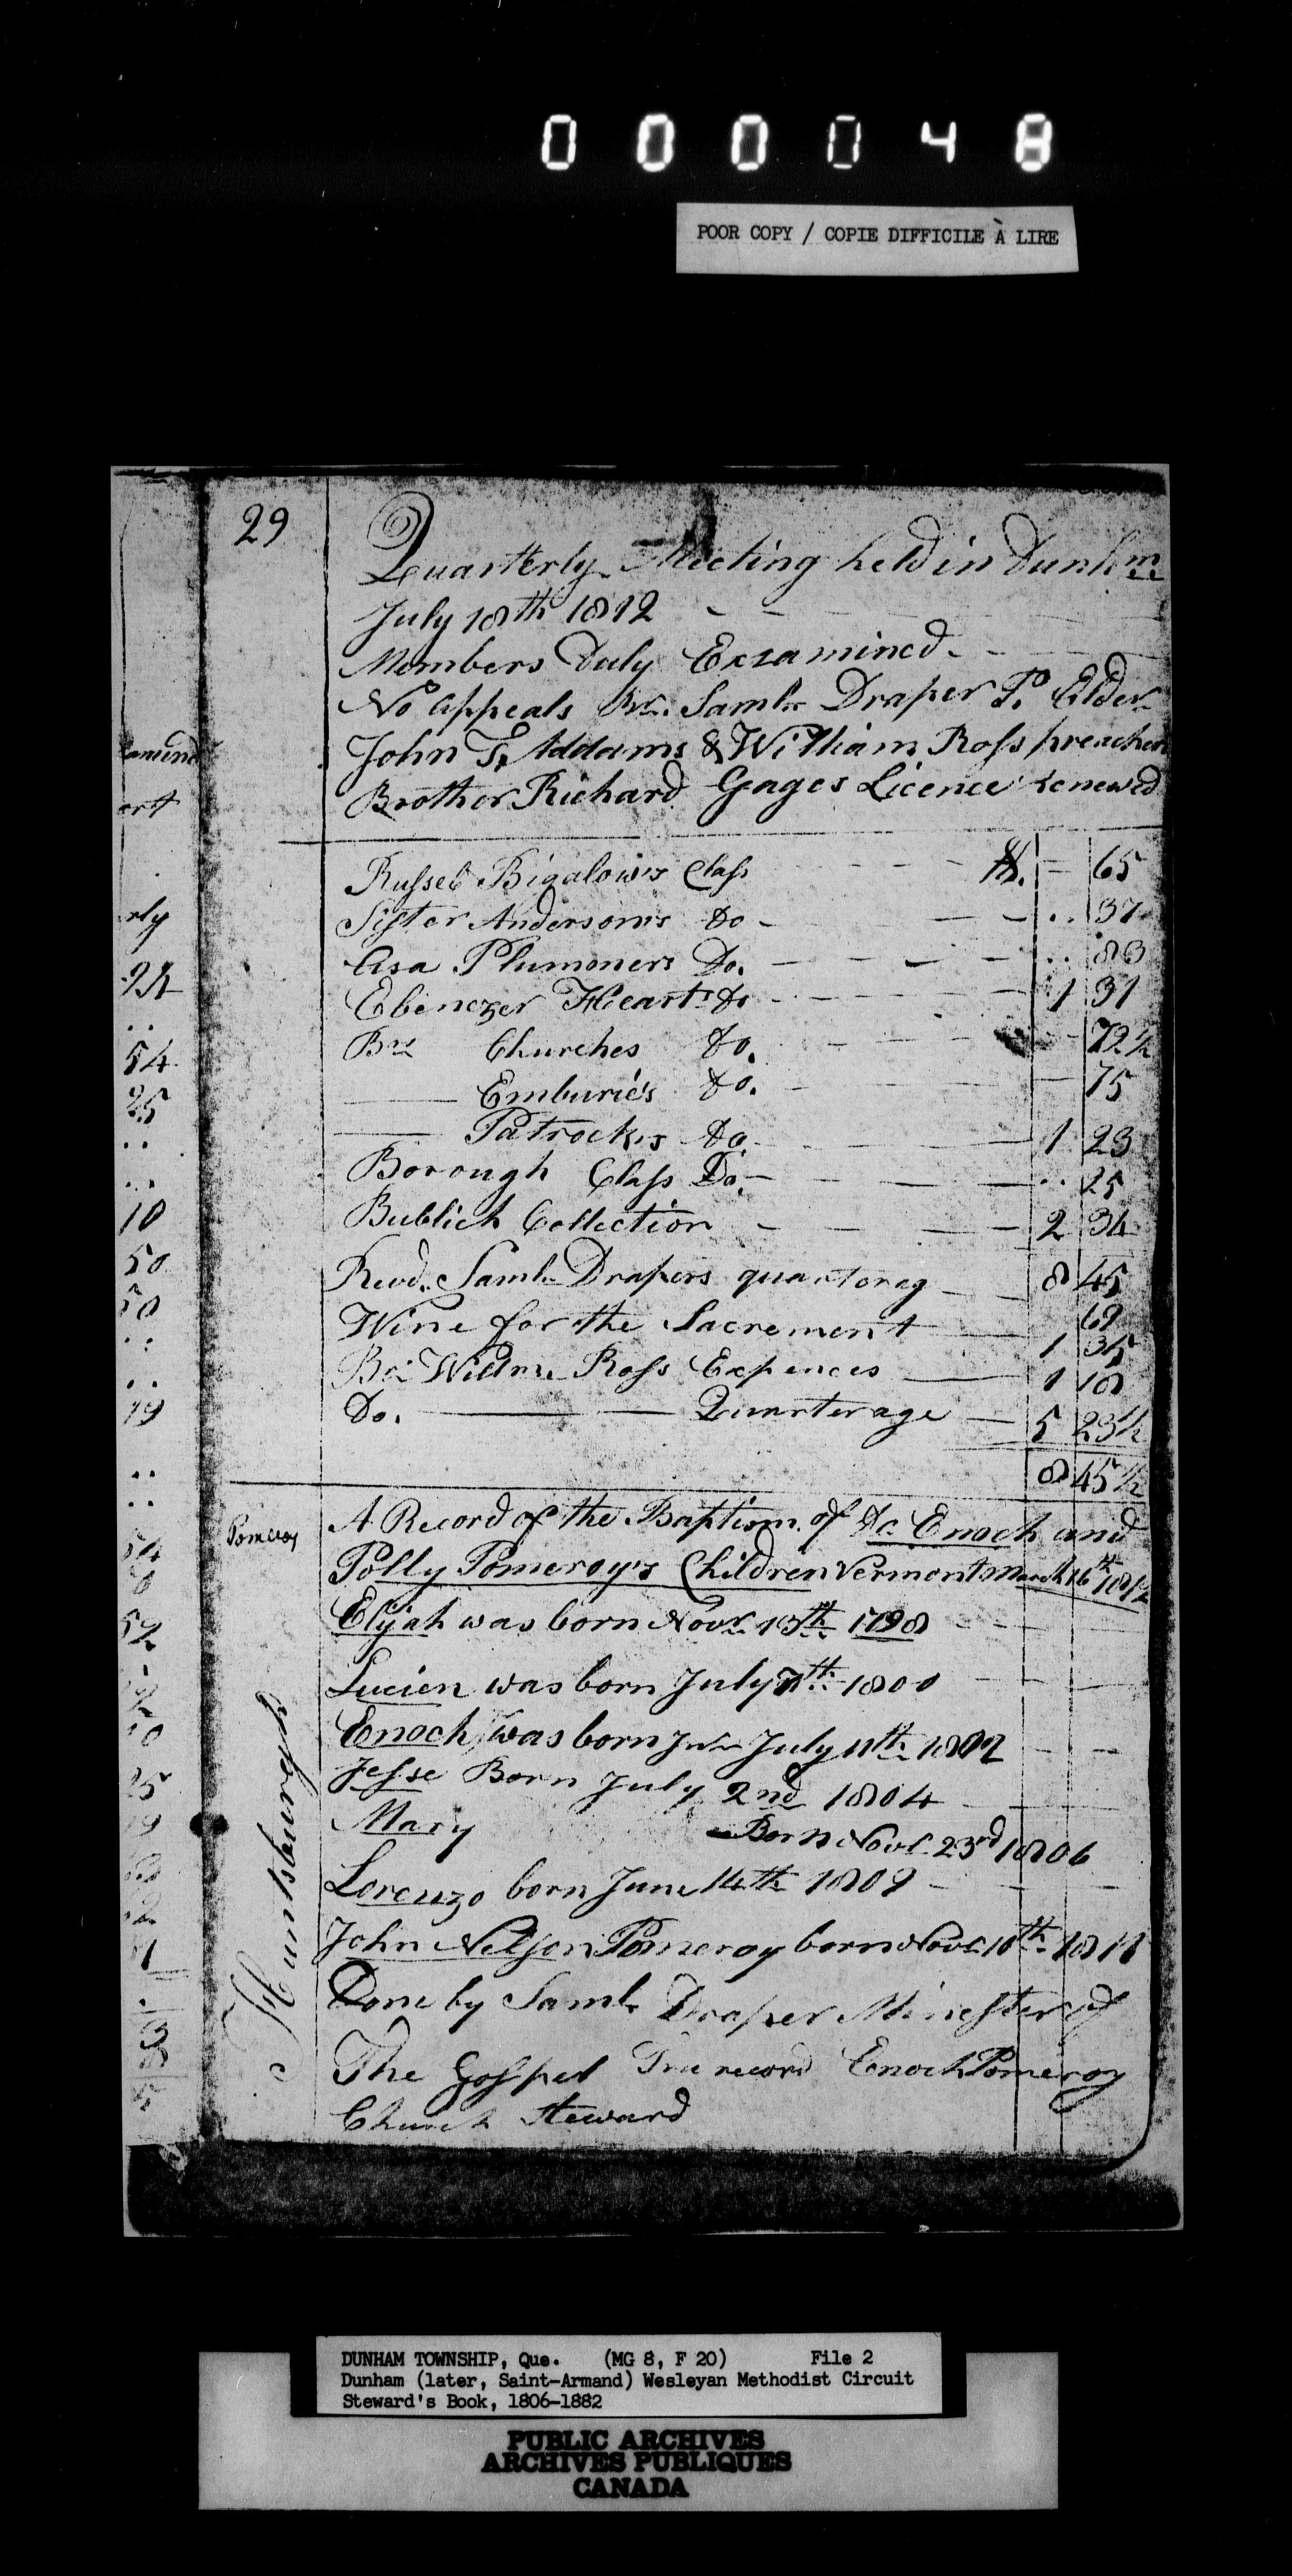 000048
POOR COPY / COPIE DIFFICILE À LIRE
29
Quarterly Meeting held in Dunhm
July 18th 1812
Members Duly Exsamined
No appeals Br. Saml. Draper P. Elder
John T. Addams & William Ross preachers
Brother Richard Gages Licence renewed
Russel Bigalow's Class — 65
Sister Anderson's Do .. 37
Asa Plumoners Do. .. 83
Ebenezer Heart's Do 1 31
Br. Churches Do. 72½
Emburie's Do. 75
Patrock's Do 1 23
Borough Class Do. .. 25
Bublick Collection 2 34
Revd. Saml. Drapers quartereg 8 45
69
Wine for the Sacrement 1 35
Br. Willm. Ross Expences 1 18
Do. Quarterage 5 23½
8 45½
Pomeroy
A Record of the Baptism of Enoch and
Polly Pomeroy's Children Vermont March 16th 1812
Elijah was born Novr. 13th 1798
Lucien was born July 7th 1800
Enoch was born July 11th 1802
Jesse Born July 2nd 1804
Mary Born Novr. 23rd 1806
Lorenzo born June 14th 1809
John Nelson Pomeroy born Novr. 10th 1811
Done by Saml. Draper Minester of
The Gospel True record Enoch Pomeroy
Church Steward
Huntsburgh
amend
ort
rly
54
25
10
50
50
19
DUNHAM TOWNSHIP, Que. (MG 8, F 20) File 2
Dunham (later, Saint-Armand) Wesleyan Methodist Circuit
Steward's Book, 1806-1882
PUBLIC ARCHIVES
ARCHIVES PUBLIQUES
CANADA